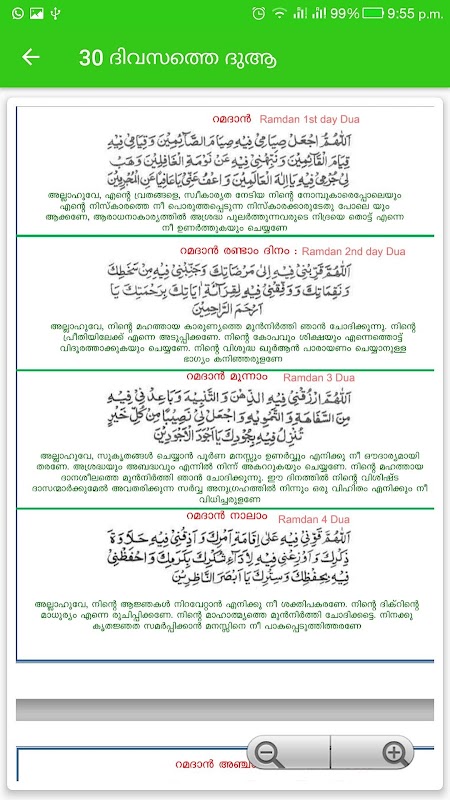 99% 9:55 p.m.
30 ദിവസത്തെ ദുആ
റമദാൻ Ramdan 1st day Dua
اَللّٰهُمَّ اجْعَلْ صِيَامِيْ فِيْهِ صِيَامَ الصَّآئِمِيْنَ وَ قِيَامِيْ فِيْهِ
قِيَامَ الْقَآئِمِيْنَ وَ نَبِّهْنِيْ فِيْهِ عَنْ نَوْمَةِ الْغَافِلِيْنَ وَ هَبْ
لِيْ جُرْمِيْ فِيْهِ يَا اِلٰهَ الْعَالَمِيْنَ وَ اعْفُ عَنِّيْ يَا عَافِيًا عَنِ الْمُجْرِمِيْنَ
അല്ലാഹുവേ, എന്റെ വ്രതങ്ങളെ, സ്വീകാര്യത നേടിയ നിന്റെ നോമ്പുകാരെപ്പോലെയും
എന്റെ നിസ്കാരത്തെ നീ പൊരുത്തപ്പെടുന്ന നിസ്കാരക്കാരുടേതു പോലെ യും
ആക്കണേ, ആരാധനാകാര്യത്തിൽ അശ്രദ്ധ പുലർത്തുന്നവരുടെ നിദ്രയെ തൊട്ട് എന്നെ
നീ ഉണർത്തുകയും ചെയ്യണേ
റമദാൻ രണ്ടാം ദിനം : Ramdan 2nd day Dua
اَللّٰهُمَّ قَرِّبْنِيْ فِيْهِ اِلٰى مَرْضَاتِكَ وَ جَنِّبْنِيْ فِيْهِ مِنْ سَخَطِكَ
وَ نَقِمَاتِكَ وَ وَفِّقْنِيْ فِيْهِ لِقِرَآئَةِ اٰيَاتِكَ بِرَحْمَتِكَ يَا
اَرْحَمَ الرَّاحِمِيْنَ
അല്ലാഹുവേ, നിന്റെ മഹത്തായ കാരുണ്യത്തെ മുൻനിർത്തി ഞാൻ ചോദിക്കുന്നു. നിന്റെ
പ്രീതിയിലേക്ക് എന്നെ അടുപ്പിക്കണേ. നിന്റെ കോപവും ശിക്ഷയും എന്നെത്തൊട്ട്
വിദൂരത്താക്കുകയും ചെയ്യണേ. നിന്റെ വിശുദ്ധ ഖുർആൻ പാരായണം ചെയ്യാനുള്ള
ഭാഗ്യം കനിഞ്ഞരുളണേ
റമദാൻ മൂന്നാം Ramdan 3 Dua
اَللّٰهُمَّ ارْزُقْنِيْ فِيْهِ الذِّهْنَ وَ التَّنْبِيْهَ وَ بَاعِدْنِيْ فِيْهِ
مِنَ السَّفَاهَةِ وَ التَّمْوِيْهِ وَ اجْعَلْ لِيْ نَصِيْبًا مِنْ كُلِّ خَيْرٍ
تُنْزِلُ فِيْهِ بِجُوْدِكَ يَا اَجْوَدَ الْاَجْوَدِيْنَ
അല്ലാഹുവേ, സുകൃതങ്ങൾ ചെയ്യാൻ പൂർണ മനസ്സും ഉണർവ്വും എനിക്കു നീ ഔദാര്യമായി
തരണേ. അശ്രദ്ധയും അബദ്ധവും എന്നിൽ നിന്ന് അകററുകയും ചെയ്യണേ. നിന്റെ മഹത്തായ
ദാനശീലത്തെ മുൻനിർത്തി ഞാൻ ചോദിക്കുന്നു. ഈ ദിനത്തിൽ നിന്റെ വിശിഷ്ട
ദാസന്മാർക്കുമേൽ അവതരിക്കുന്ന സർവ്വ അനുഗ്രഹത്തിൽ നിന്നും ഒരു വിഹിതം എനിക്കും നീ
വിധിച്ചരുളണേ
റമദാൻ നാലാം Ramdan 4 Dua
اَللّٰهُمَّ قَوِّنِيْ فِيْهِ عَلٰى اِقَامَةِ اَمْرِكَ وَ اَذِقْنِيْ فِيْهِ حَلَاوَةَ
ذِكْرِكَ وَ اَوْزِعْنِيْ فِيْهِ لِاَدَآءِ شُكْرِكَ بِكَرَمِكَ وَ احْفَظْنِيْ
فِيْهِ بِحِفْظِكَ وَ سِتْرِكَ يَا اَبْصَرَ النَّاظِرِيْنَ
അല്ലാഹുവേ, നിന്റെ ആജ്ഞകൾ നിറവേറ്റാൻ എനിക്കു നീ ശക്തിപകരണേ. നിന്റെ ദിക്റിന്റെ
മാധുര്യം എന്നെ രുചിപ്പിക്കണേ. നിന്റെ മാഹാത്മ്യത്തെ മുൻനിർത്തി ചോദിക്കട്ടെ. നിനക്കു
കൃതജ്ഞത സമർപ്പിക്കാൻ മനസ്സിനെ നീ പാകപ്പെടുത്തിത്തരണേ
റമദാൻ അഞ്ചാം